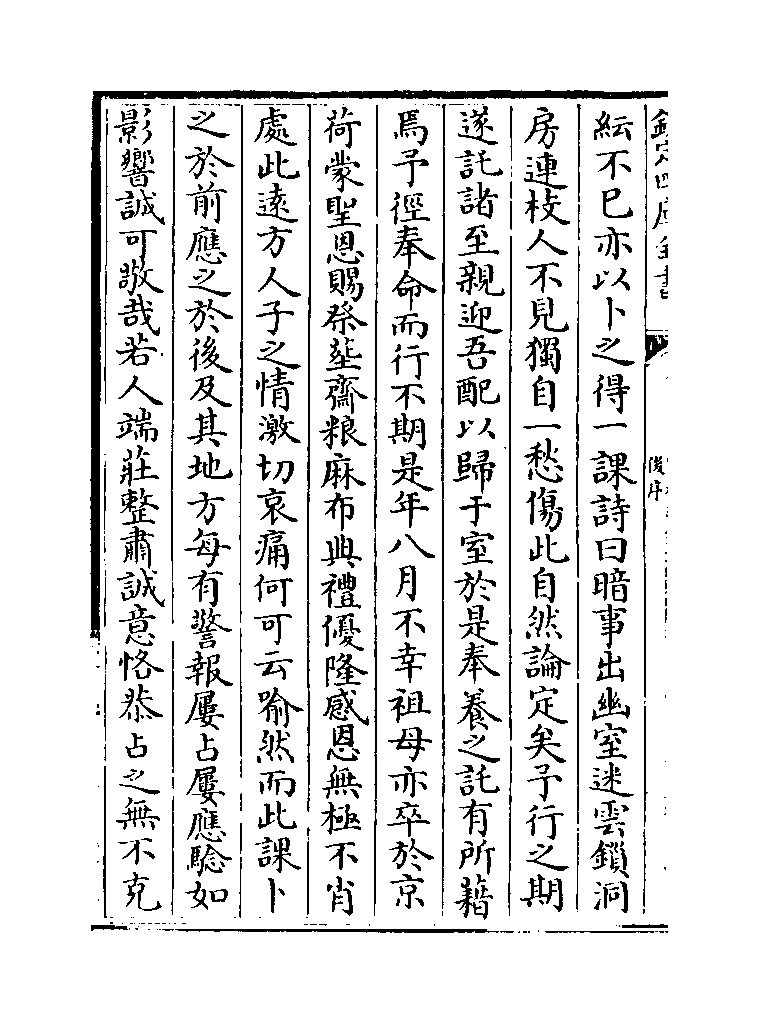 欽定四庫全書
後序
紜不已亦以卜之得一課詩曰暗事出幽室迷雲鎖洞
房連枝人不見獨自一愁傷此自然論定矣予行之期
遂託諸至親迎吾配以歸于室於是奉養之託有所藉
焉予徑奉命而行不期是年八月不幸祖母亦卒於京
荷蒙聖恩賜祭塟齋粮麻布典禮優隆感恩無極不肖
處此遠方人子之情激切哀痛何可云喻然而此課卜
之於前應之於後及其地方每有警報屢占屢應驗如
影響誠可敬哉若人端莊整肅誠意恪恭占之無不克